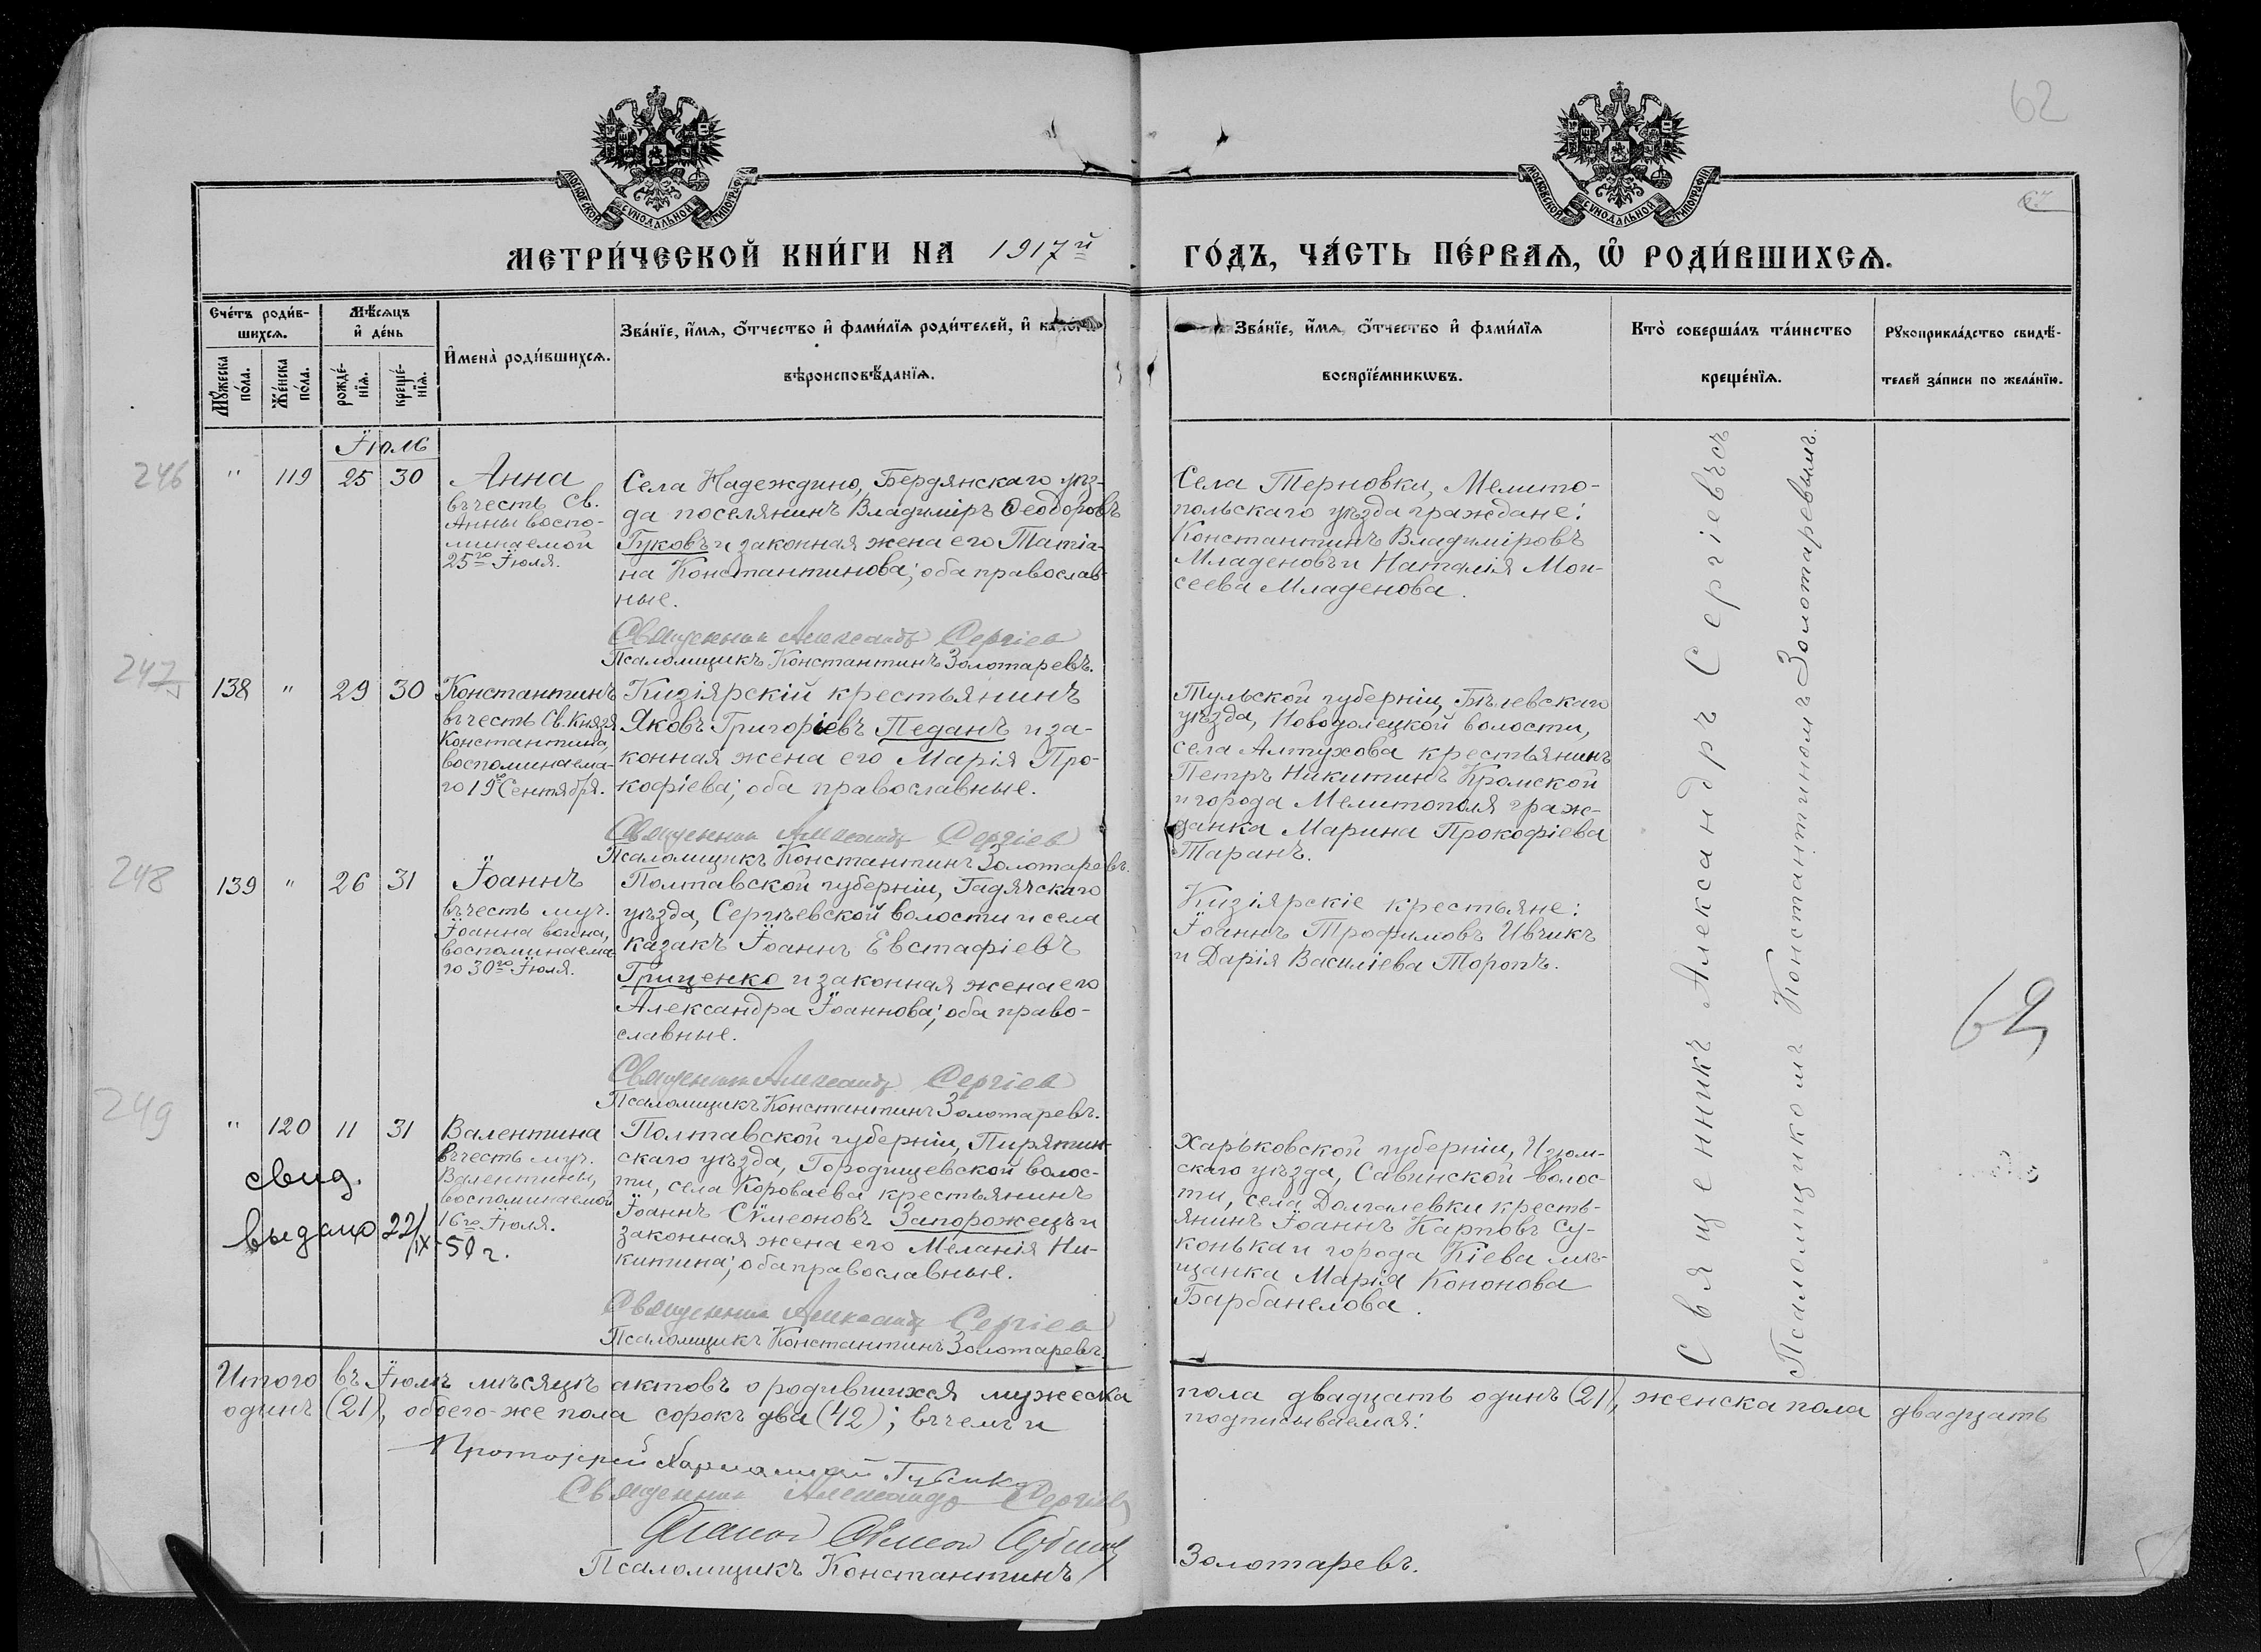 62
МОСКОВСКОЙ СѴНОДАЛЬНОЙ ТИПОГРАФІИ
МОСКОВСКОЙ СѴНОДАЛЬНОЙ ТИПОГРАФІИ
МЕТРИ́ЧЕСКОЙ КНИ́ГИ НА 1917й ГО́ДЪ, ЧА́СТЬ ПЕ́РВАѦ, Ѡ҆ РОДИ́ВШИХСѦ.
Сче́тъ роди́в-
шихсѧ.
Мꙋ́жеска по́ла.
Же́нска по́ла.
Мѣ́сѧцъ
и҆ де́нь
рожде́-
нїѧ.
креще́-
нїѧ.
И҆мена̀ роди́вшихсѧ.
Зва́нїе, и҆́мѧ, ѻ҆́тчество и҆ фами́лїѧ роди́телей, и҆
вѣроисповѣ́данїѧ.
Зва́нїе, и҆́мѧ, ѻ҆́тчество и҆ фами́лїѧ
воспрїе́мникѡвъ.
Кто̀ соверша́лъ та́инство
креще́нїѧ.
Рꙋкоприкла́дство свидѣ́-
телей за́писи по жела́нїю.
Іюль
246
" 119 25 30
Анна
въ честь Св.
Анны воспо-
минаемой
25го Іюля.
Села Надеждино, Бердянскаго уѣз-
да поселянинъ Владиміръ Ѳеодоровъ
Гуковъ и законная жена его Татіа-
на Константинова; оба православ-
ные.
Священник Александр Сергіев
Псаломщикъ Константинъ Золотаревъ.
Села Терновки, Мелито-
польскаго уѣзда граждане:
Константинъ Владиміровъ
Младеновъ и Наталія Мои-
сеева Младенова.
247
138 " 29 30
Константинъ
въ честь Св. Князя
Константина,
воспоминаема-
го 19го Сентября.
Кизіярскій крестьянинъ
Яковъ Григоріевъ Педанъ и за-
конная жена его Марія Про-
кофіева; оба православные.
Священник Александр Сергіев
Псаломщикъ Константинъ Золотаревъ.
Тульской губерніи, Бѣлевскаго
уѣзда, Новодолецкой волости,
села Алтухова крестьянинъ
Петръ Никитинъ Кромской
и города Мелитополя граж-
данка Марина Прокофіева
Таранъ.
248
139 " 26 31
Іоаннъ
въ честь муч.
Іоанна воина,
воспоминаема-
го 30го Іюля.
Полтавской губерніи, Гадячскаго
уѣзда, Сергіевской волости и села
казакъ Іоаннъ Евстафіевъ
Гриценко и законная жена его
Александра Іоаннова; оба право-
славные.
Священник Александр Сергіев
Псаломщикъ Константинъ Золотаревъ.
Кизіярскіе крестьяне:
Іоаннъ Трофимовъ Ивчикъ
и Дарія Василіева Торопъ.
62
249
" 120 11 31
Валентина
въ честь муч.
Валентины,
воспоминаемой
16го Іюля.
свид.
выдано 22/IX 50 г.
Полтавской губерніи, Пирятин-
скаго уѣзда, Городищевской волос-
ти, села Короваева крестьянинъ
Іоаннъ Сѵмеоновъ Запорожецъ и
законная жена его Меланія Ни-
китина; оба православные.
Священник Александр Сергіев
Псаломщикъ Константинъ Золотаревъ.
Харьковской губерніи, Изюм-
скаго уѣзда, Савинской волос-
ти, села Долгалевки кресть-
янинъ Іоаннъ Карповъ Су-
конька и города Кіева мѣ-
щанка Марія Кононова
Барбанелова.
Священникъ Александръ Сергіевъ съ
Псаломщикомъ Константиномъ Золотаревымъ.
Итого въ Іюлѣ мѣсяцѣ актовъ о родившихся мужеска пола двадцать одинъ (21), женска пола двадцать
одинъ (21), обоего-же пола сорокъ два (42); въ чемъ и подписываемся:
Протоіерей Харлампій
Священник Александр Сергіев
Псаломщикъ Константинъ Золотаревъ.